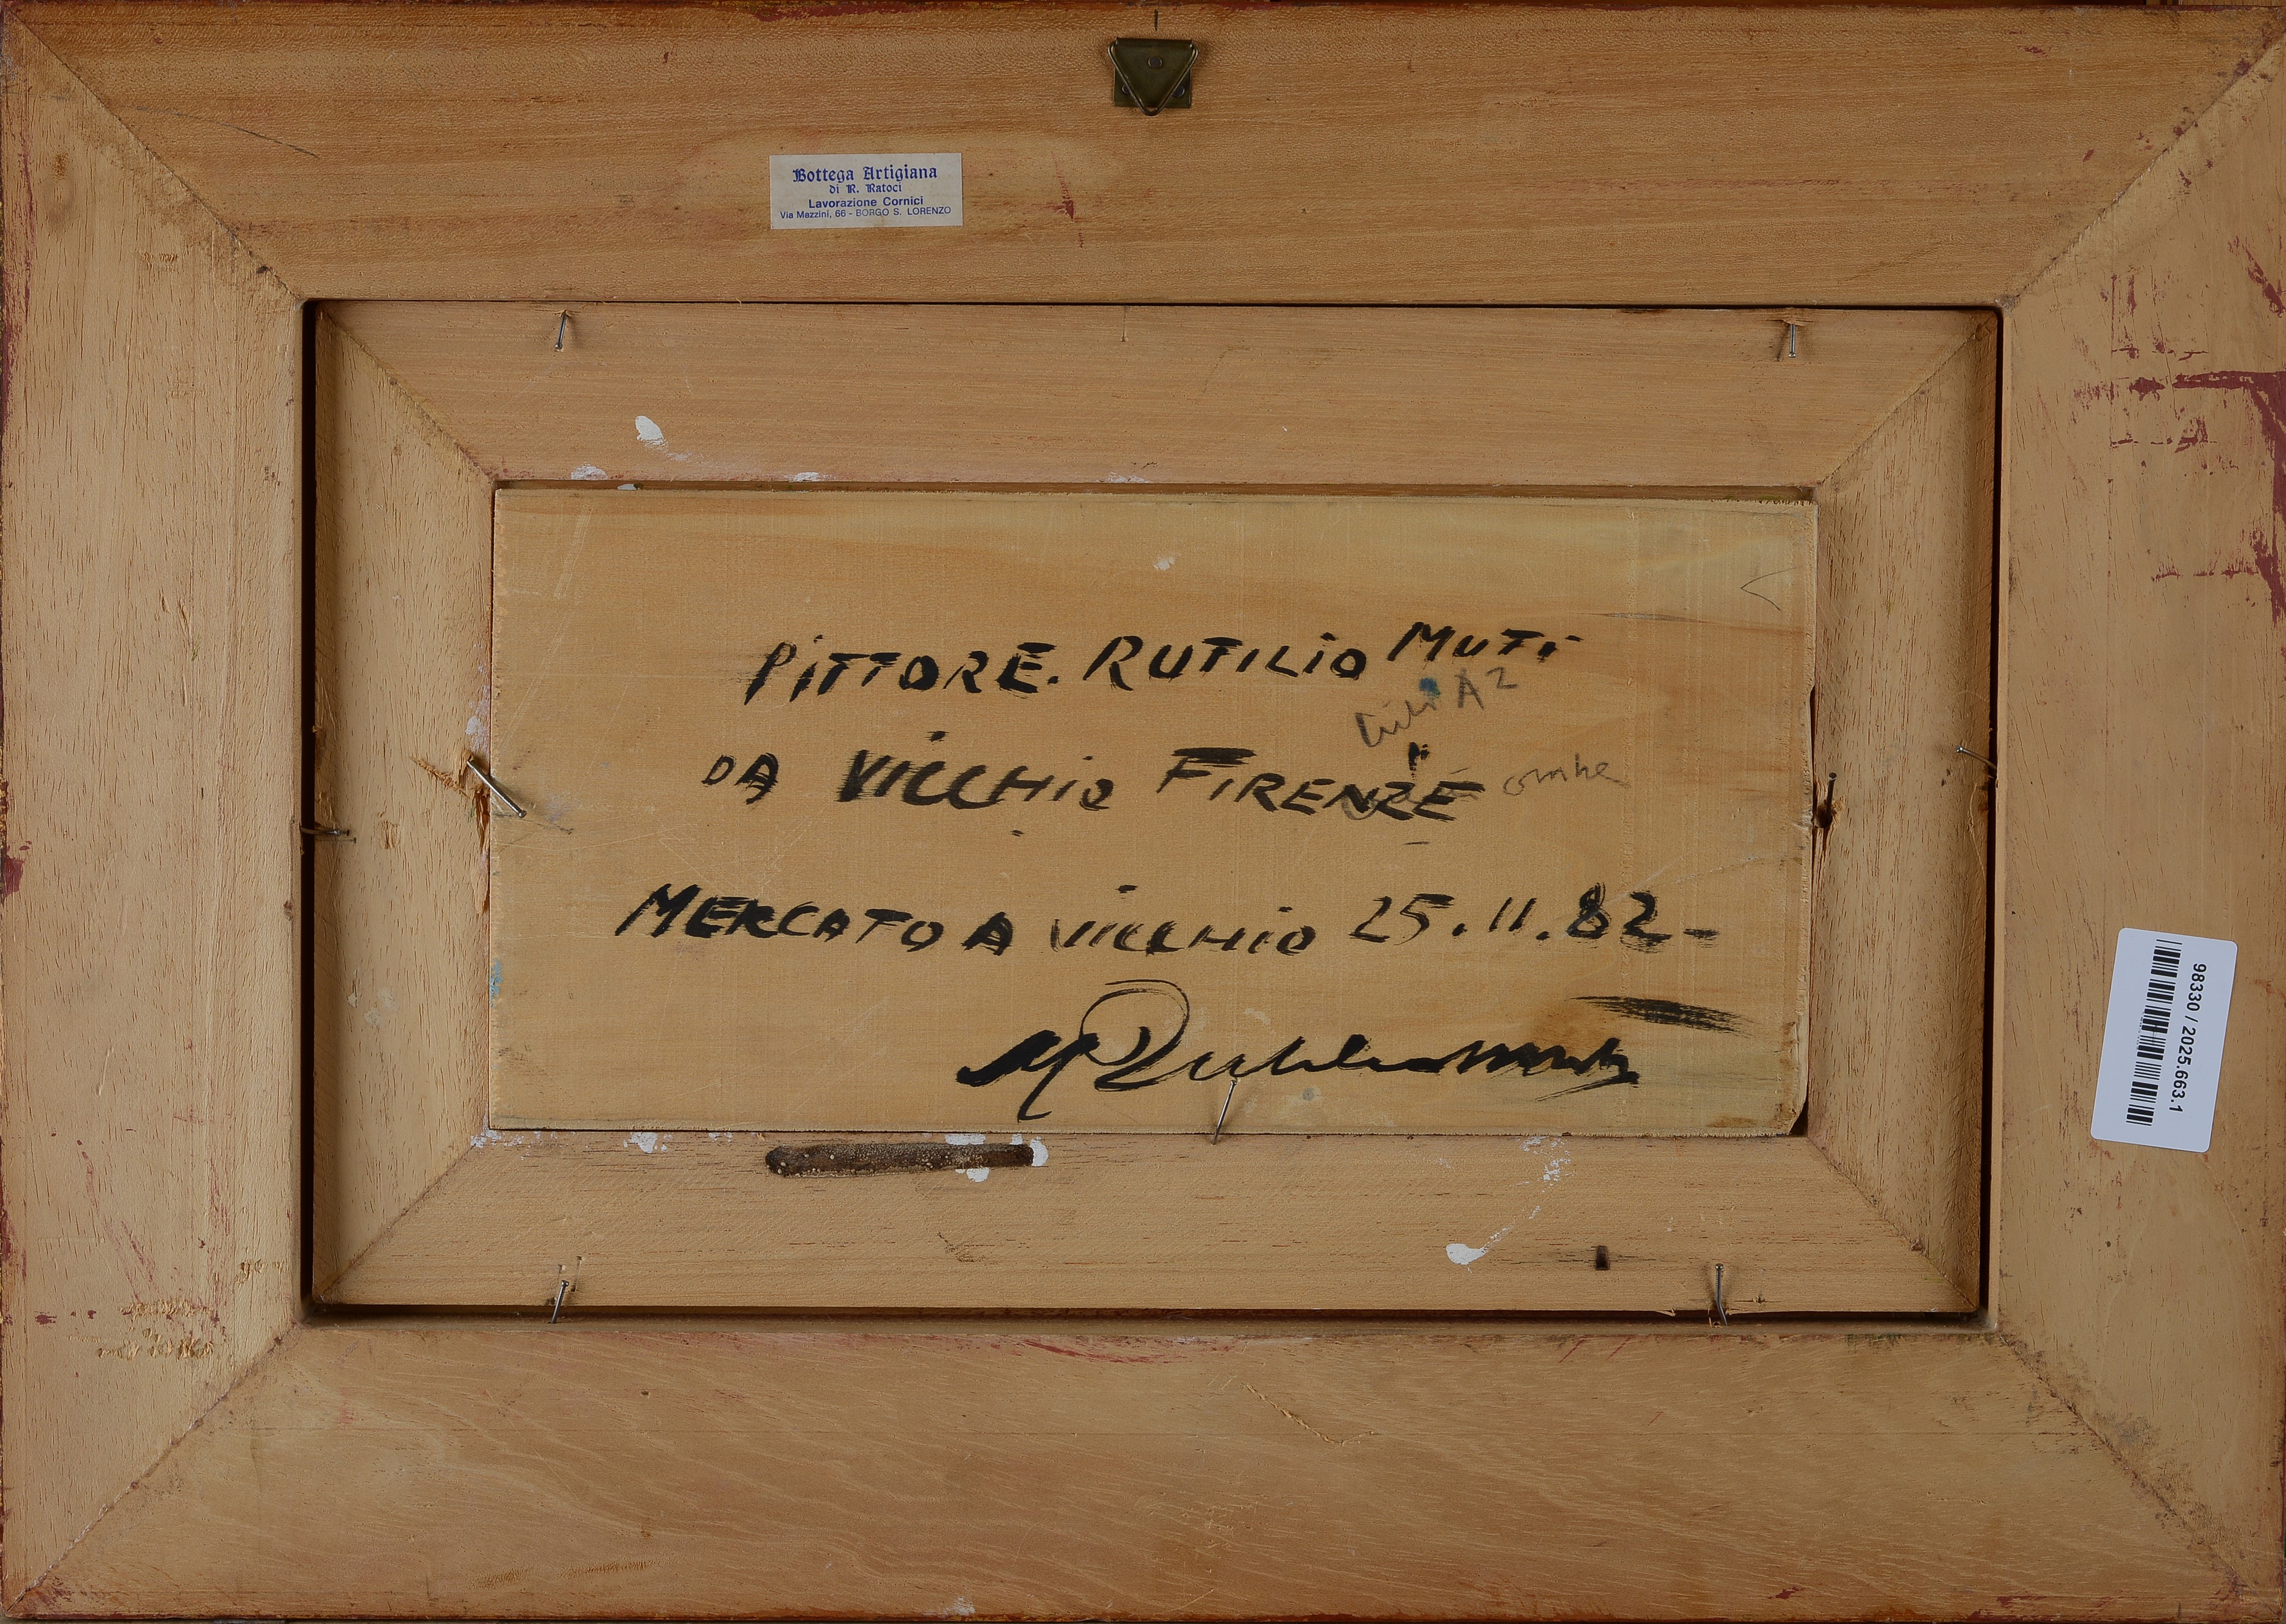 Bottega Artigiana
di R. Ratoci
Lavorazione Cornici
Via Mazzini, 66 - BORGO S. LORENZO
PITTORE. RUTILIO MUTI
A 2
DA VICCHIO FIRENZE
MERCATO A VICCHIO 25.11.82-
98330 / 2025.663.1